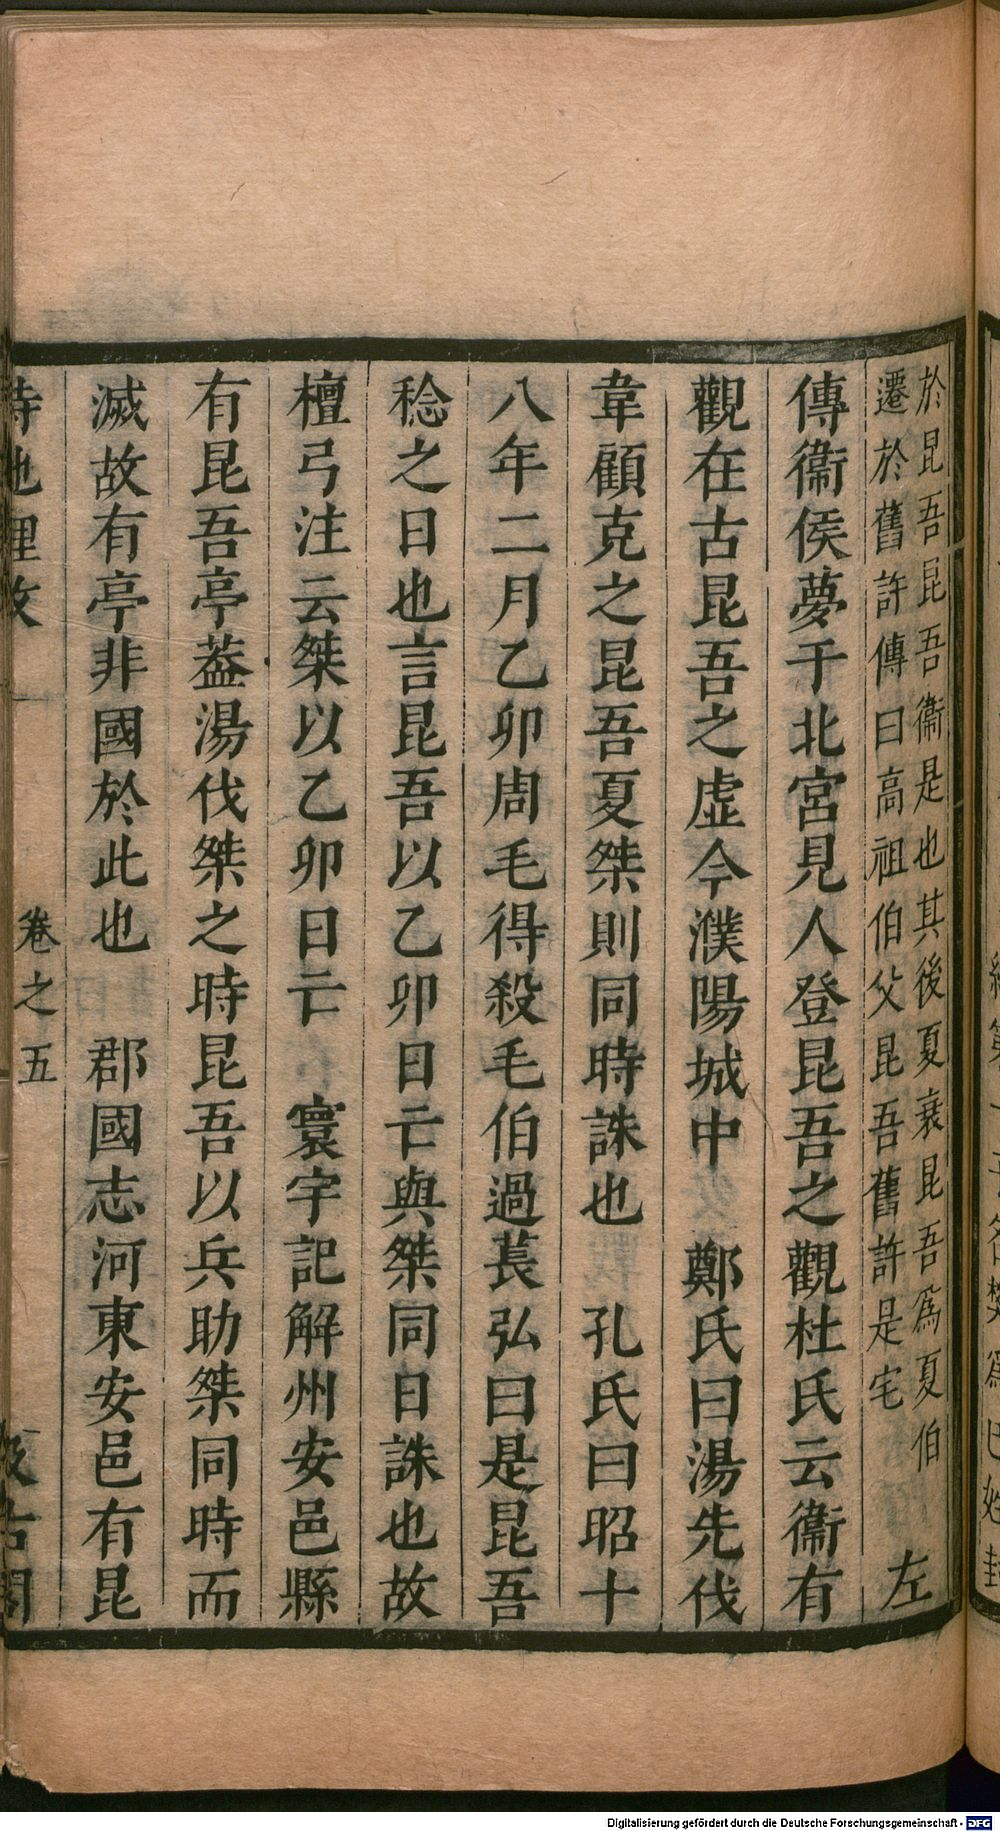 於昆吾昆吾衞是也其後夏衰昆吾爲夏伯
遷於舊許傳曰高祖伯父昆吾舊許是宅
左
傳衞侯夢于北宮見人登昆吾之觀杜氏云衞有
觀在古昆吾之虛今濮陽城中 鄭氏曰湯先伐
韋顧克之昆吾夏桀則同時誅也 孔氏曰昭十
八年二月乙卯周毛得殺毛伯過萇弘曰是昆吾
稔之日也言昆吾以乙卯日亡與桀同日誅也故
檀弓注云桀以乙卯日亡 寰宇記解州安邑縣
有昆吾亭葢湯伐桀之時昆吾以兵助桀同時而
滅故有亭非國於此也 郡國志河東安邑有昆
詩地理攷
卷之五
汲古閣
Digitalisierung gefördert durch die Deutsche Forschungsgemeinschaft - DFG